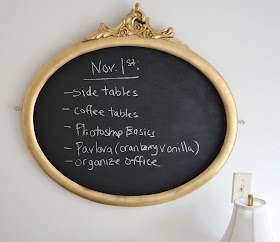 Nov. 1st:
- Side tables
- coffee tables
- Photoshop Basics
- Pavlova (cranberry vanilla)
- organize office